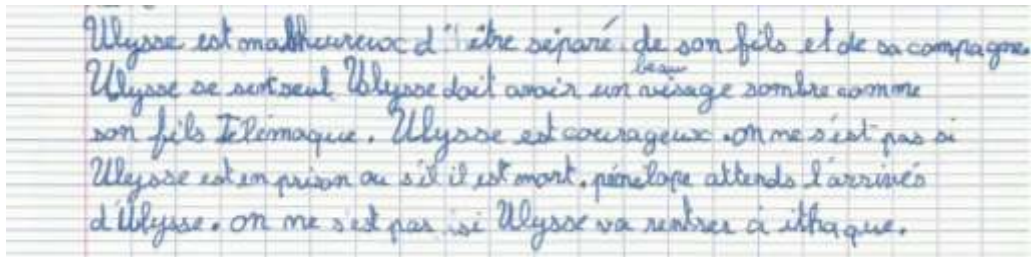 Ulysse est malheureux d'être séparé de son fils et de sa compagne
Ulysse se sent seul Ulysse doit avoir un beau visage sombre comme
son fils Télémaque. Ulysse est courageux. on ne s'est pas si
Ulysse est en prison ou s'il il est mort. pénélope attends l'arrivés
d'Ulysse. on ne s'est pas si Ulysse va rentrer à ithaque.